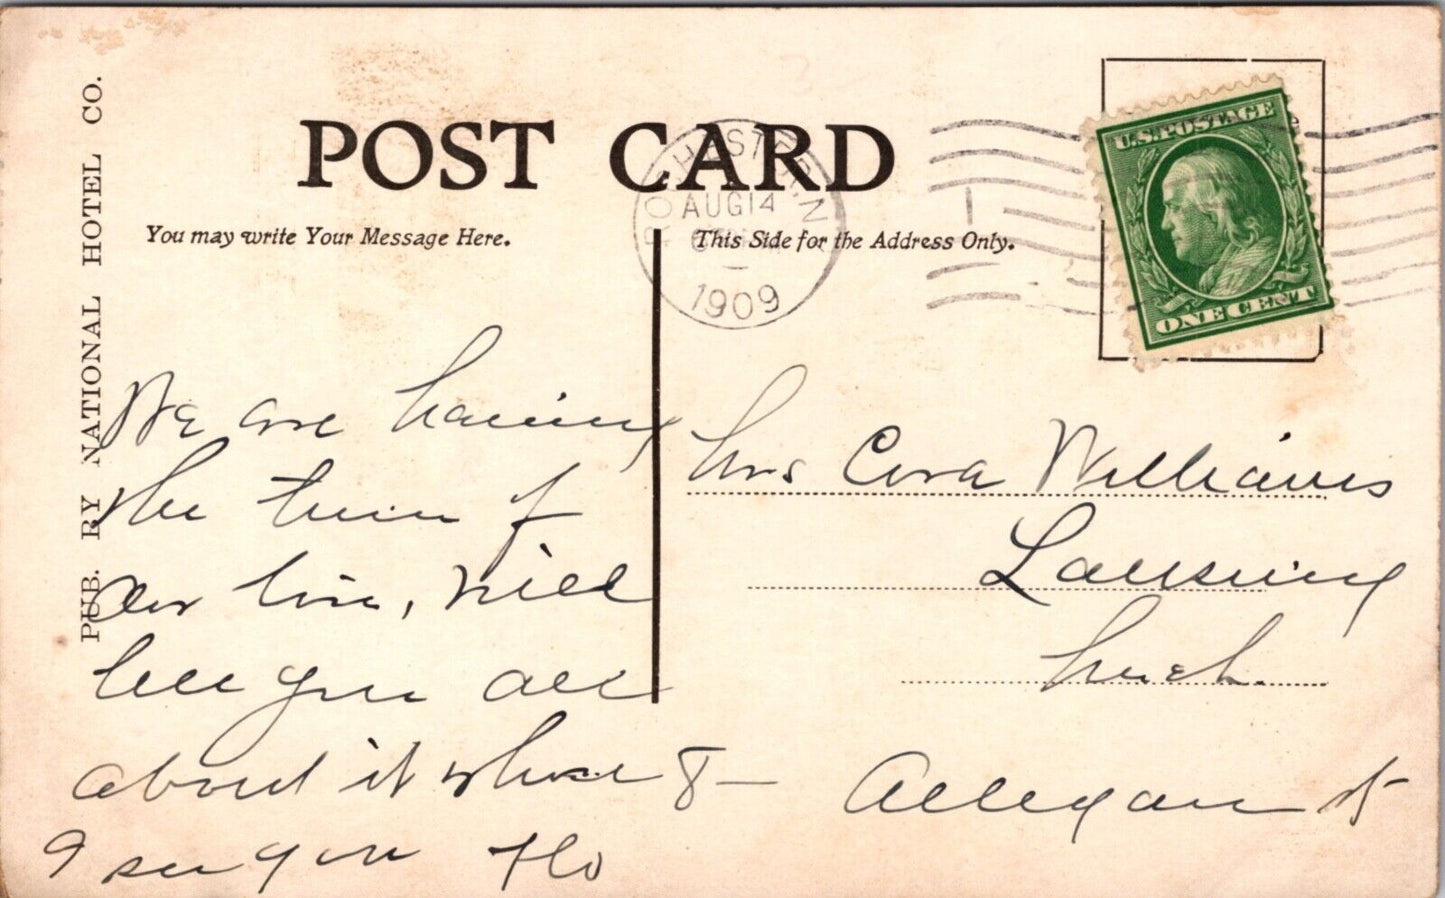 POST CARD
You may write Your Message Here.
This Side for the Address Only.
PUB. BY NATIONAL HOTEL CO.
ROCHESTER, N
AUG 14
1909
U.S. POSTAGE
ONE CENT
We are having
the time of
our live, will
tell you all
about it when 8-
I see you Flo
Mrs Cora Williams
Lansing
Mich.
Allegan St